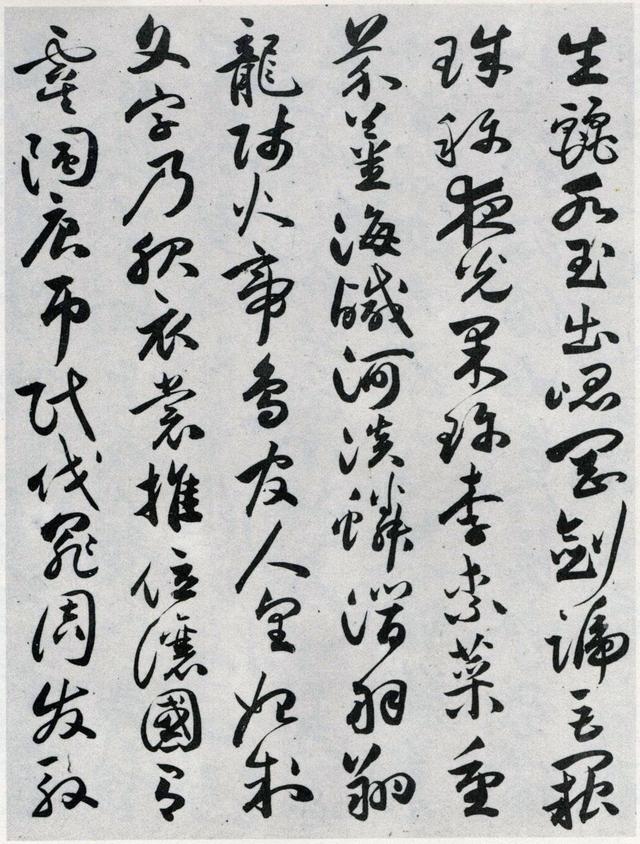 生麗水玉出崑岡劍號巨闕
珠稱夜光果珍李柰菜重
芥薑海鹹河淡鱗潛羽翔
龍師火帝鳥官人皇始制
文字乃服衣裳推位讓國有
虞陶唐弔民伐罪周發殷